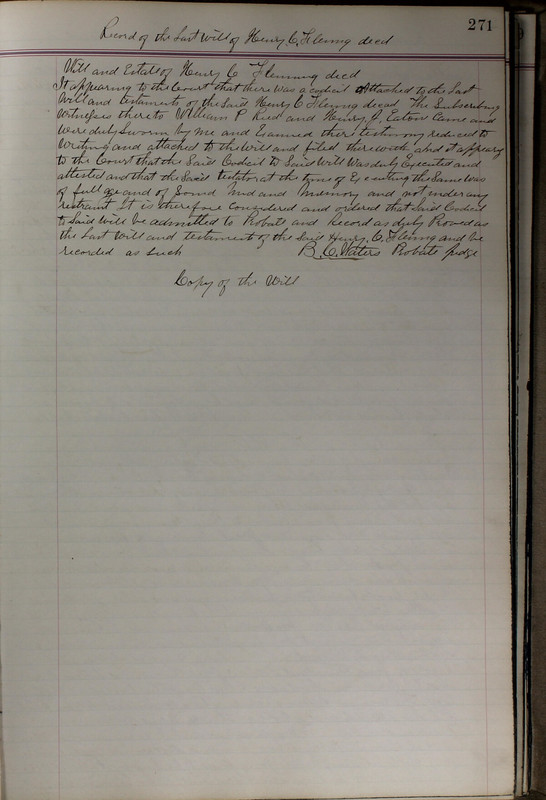 271
Record of the Last Will of Henry C Fleming decd
Will and Estate of Henry C Flemming decd
It appearing to the Court that there was a codicil Attached to the Last
Will and testament of the said Henry C Fleming decad The Subscribing
Witnesses thereto William P Reed and Henry Eaton Came and
Were duly Sworn by me and Examined their testimony reduced to
Writing and attached to the Will and filed therewith and it appearing
to the Court that the Said Codicil to Said Will Was duly Executed and
attested and that the Said testator at the tyme of Executing the Same Was
of full age and of Sound Mind and Memory and not under any
restraint It is therefore Considered and ordered that Said Codicil
to Said Will be admitted to Probate and Record as duly Proved as
the Last Will and testament of the Said Henry C. Fleming and be
recorded as Such B. C. Waters Probate Judge
Copy of the Will